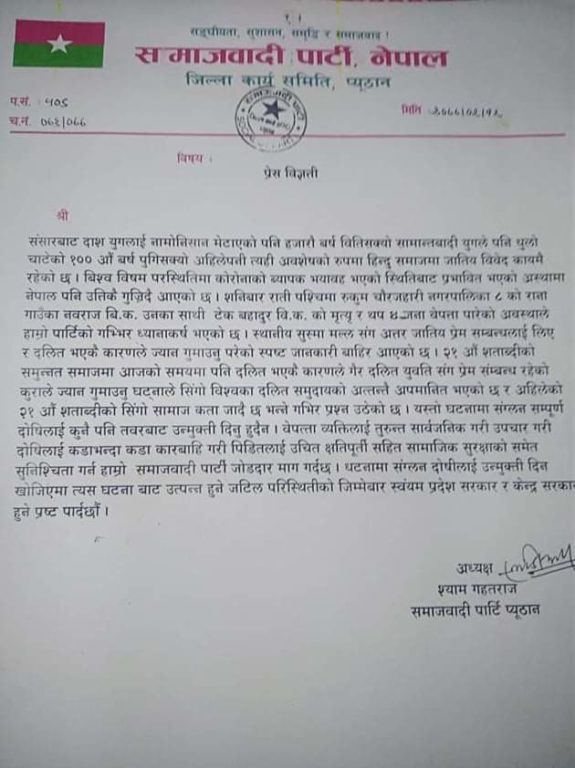 सङ्घीयता, सुशासन, समृद्धि र समाजवाद !
समाजवादी पार्टी, नेपाल
जिल्ला कार्य समिति, प्यूठान
प.सं. : १०५
च.नं. ०७६/०७७
मिति :२०७७/०२/१२
विषय :
प्रेस विज्ञप्ती
श्री
संसारबाट दाश युगलाई नामोनिसान मेटाएको पनि हजारौ बर्ष वितिसक्यो सामान्तबादी युगले पनि धुलो
चाटेको १०० औं बर्ष पुगिसक्यो अहिलेपनी त्यही अवशेषको रुपमा हिन्दु समाजमा जातिय विवेद कायमै
रहेको छ । बिश्व विषम परस्थितिमा कोरोनाको ब्यापक भयावह भएको स्थितिबाट प्रभावित भएको अस्थामा
नेपाल पनि उत्तिकै गुज्रिदै आएको छ । शनिबार राती पश्चिमा रुकुम चौरजहारी नगरपालिका ८ को राना
गाउँका नवराज बि.क. उनका साथी टेक बहादुर वि.क. को मृत्यू र थप ४ जना वेपत्ता पारेको अवस्थाले
हाम्रो पार्टिको गम्भिर ध्यानाकर्ष भएको छ । स्थानीय सुस्मा मल्ल संग अत्तर जातिय प्रेम सम्बन्धलाई लिए
र दलित भएकै कारणले ज्यान गुमाउनु परेको स्पष्ट जानकारी बाहिर आएको छ । २१ औं शताब्दीको
समुन्नत समाजमा आजको समयमा पनि दलित भएकै कारणले गैर दलित युवति संग प्रेम संम्बन्ध रहेको
कुराले ज्यान गुमाउनु घट्नाले सिंगो विश्वका दलित समुदायको अत्तन्तै अपमानित भएको छ र अहिलेको
२१ औं शताब्दीको सिंगो सामाज कता जादै छ भन्ने गभिर प्रश्न उठेको छ । यस्तो घटनामा संग्लन सम्पूर्ण
दोषिलाई कुनै पनि तवरबाट उन्मुक्ती दिनु हुदैन । वेपत्ता व्यक्तिलाई तुरुन्त सार्वजनिक गरी उपचार गरी
दोषिलाई कडाभन्दा कडा कारबाहि गरी पिडितलाई उचित क्षतिपूर्ती सहित सामाजिक सुरक्षाको समेत
सुनिश्चिता गर्न हाम्रो समाजवादी पार्टी जोडदार माग गर्दछ । धटनामा संग्लन दोषीलाई उन्मुक्ती दिन
खोजिएमा त्यस घटना बाट उत्पन्न हुने जटिल परिस्थितीको जिम्मेबार स्वंयम प्रदेश सरकार र केन्द्र सरकार
हुने प्रष्ट पार्दछौं ।
अध्यक्ष
श्याम गहतराज
समाजवादी पार्टि प्यूठान